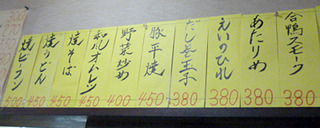 合鴨スモーク 380
あたりめ 380
えいのひれ 380
だし巻玉子 380
豚平焼 450
野菜炒め 400
和風オムレツ 450
焼そば 450
焼うどん 450
焼ビーフン 500